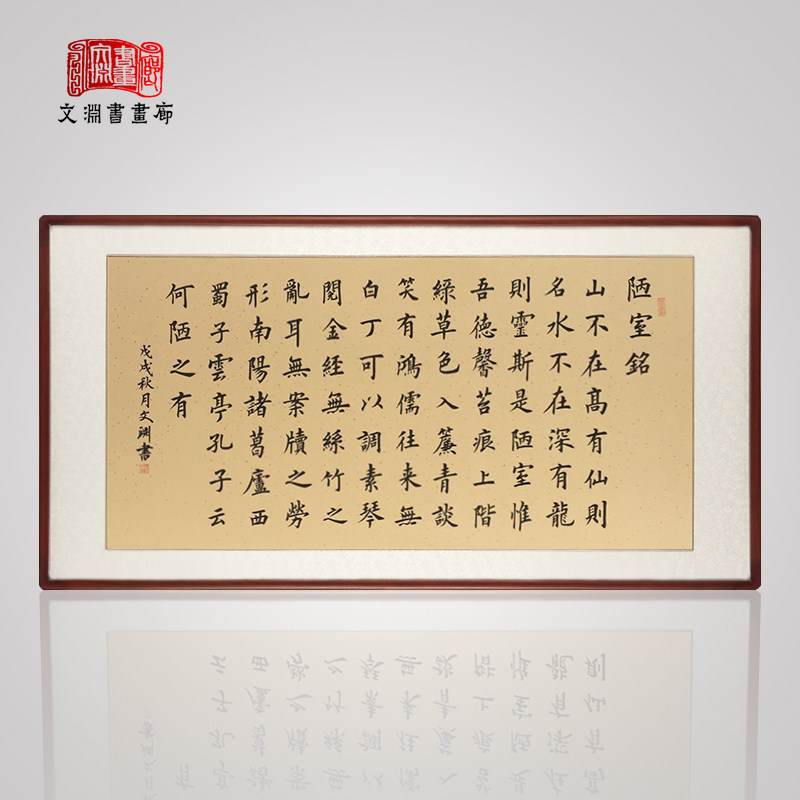 文淵書畫廊
陋室銘
山不在高有仙則
名水不在深有龍
則靈斯是陋室惟
吾德馨苔痕上階
綠草色入簾青談
笑有鴻儒往来無
白丁可以調素琴
閱金經無絲竹之
亂耳無案牘之勞
形南陽諸葛廬西
蜀子雲亭孔子云
何陋之有
戊戌秋月文淵書